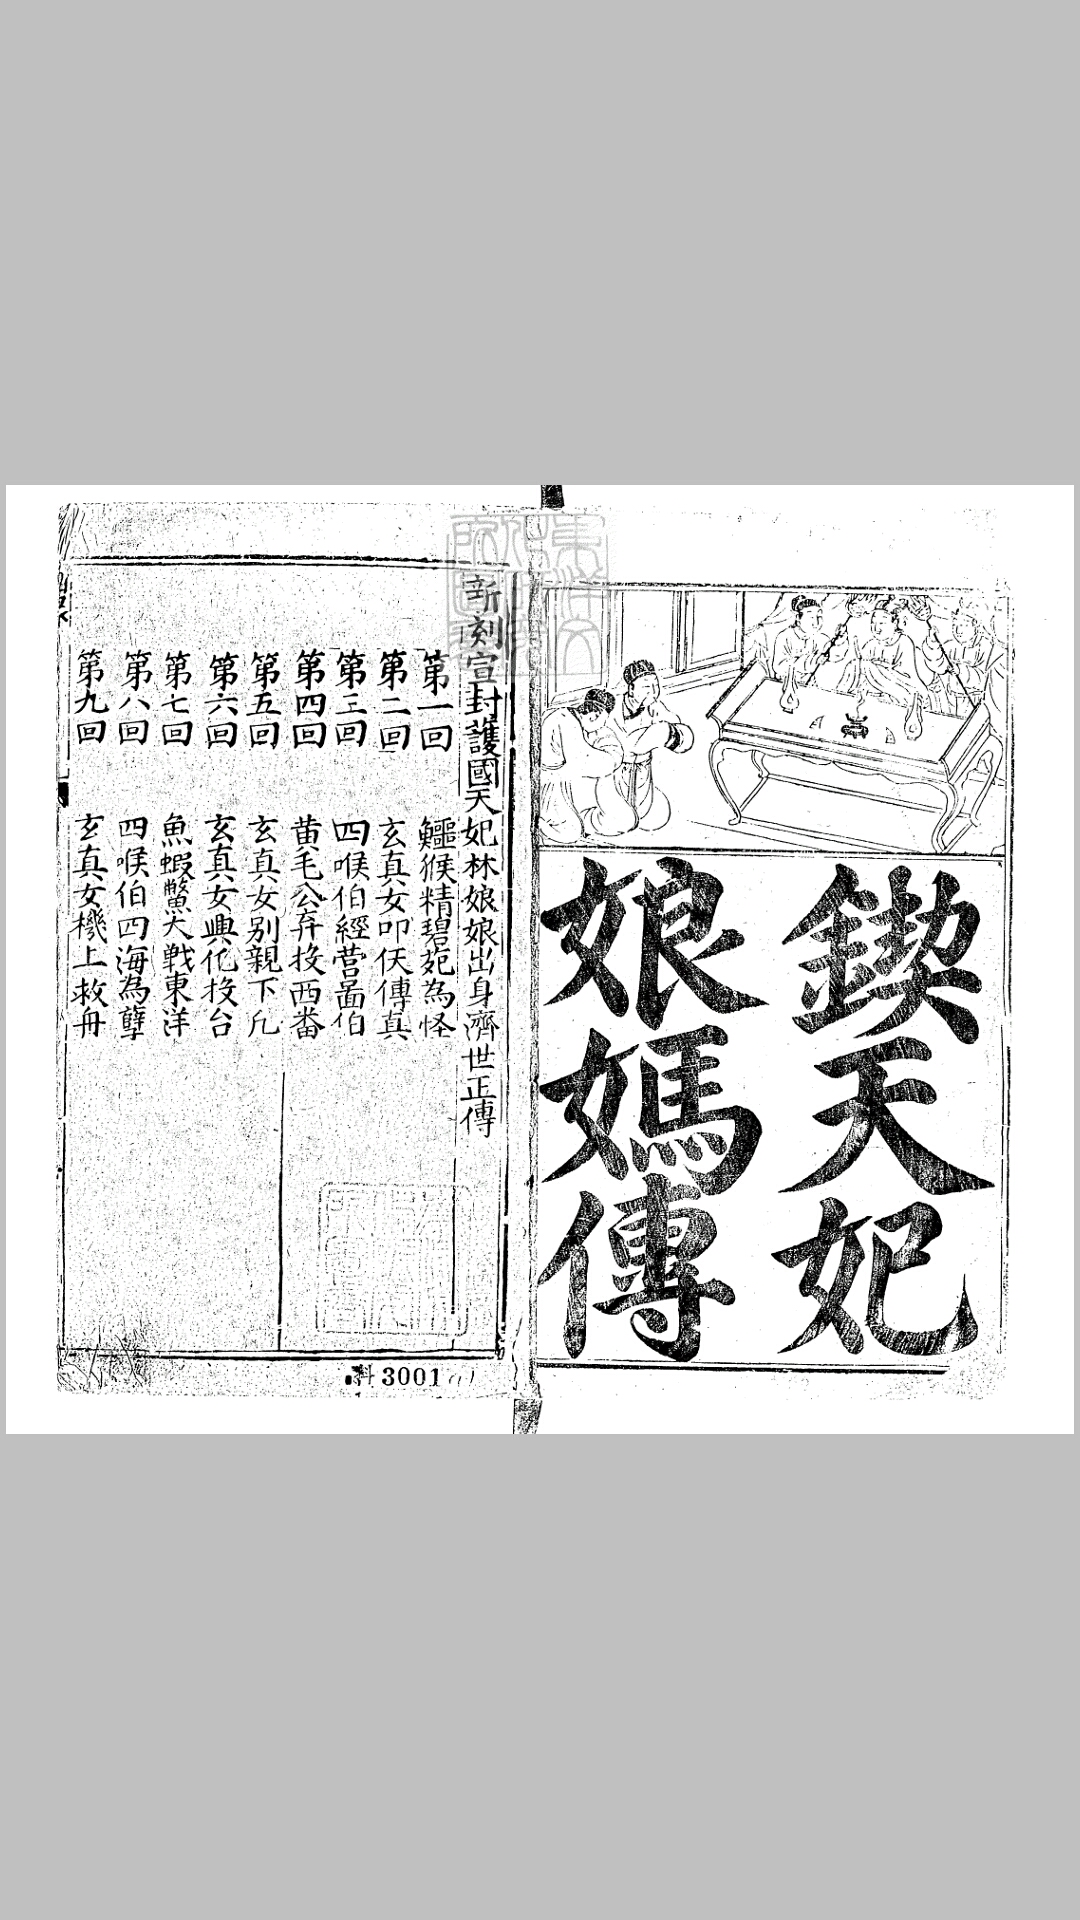 鍥天妃
娘媽傳
新刻宣封護國天妃林娘娘出身濟世正傳
第一回 鱷猴精碧苑為怪
第二回 玄真女叩仸傳真
第三回 四喉伯經营啚伯
第四回 黄毛公弃投西畨
第五回 玄真女别親下凢
第六回 玄真女興化投台
第七回 魚蝦鱉大戰東洋
第八回 四喉伯四海為孽
第九回 玄真女機上救舟
科3001